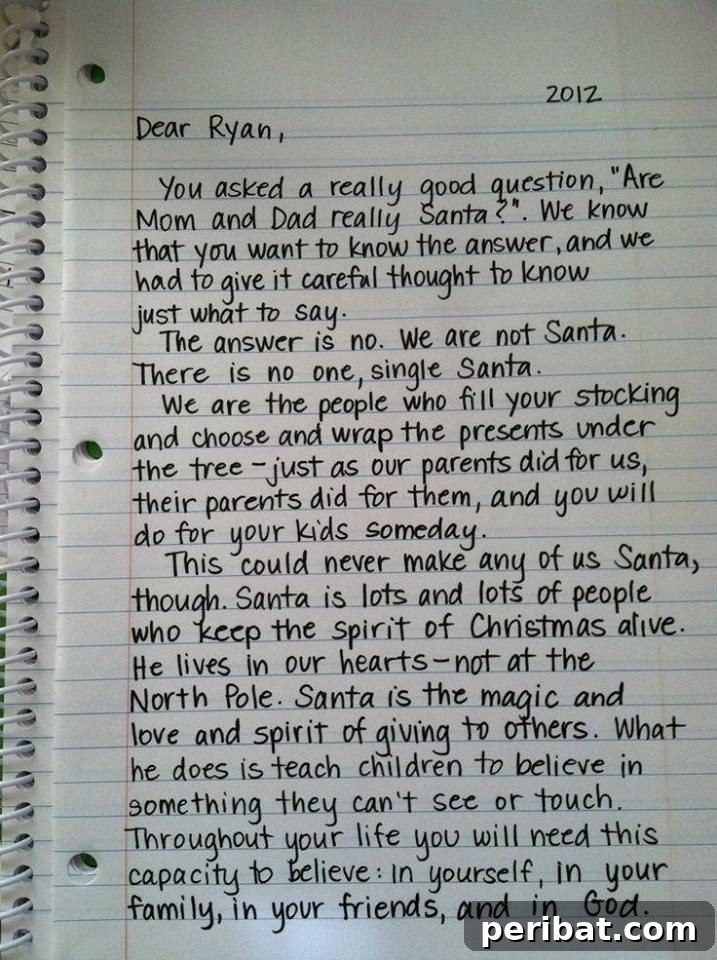 2012
Dear Ryan,
You asked a really good question, "Are
Mom and Dad really Santa?". We know
that you want to know the answer, and we
had to give it careful thought to know
just what to say.
The answer is no. We are not Santa.
There is no one, single Santa.
We are the people who fill your stocking
and choose and wrap the presents under
the tree - just as our parents did for us,
their parents did for them, and you will
do for your kids someday.
This could never make any of us Santa,
though. Santa is lots and lots of people
who keep the spirit of Christmas alive.
He lives in our hearts - not at the
North Pole. Santa is the magic and
love and spirit of giving to others. What
he does is teach children to believe in
something they can't see or touch.
Throughout your life you will need this
capacity to believe: in yourself, in your
family, in your friends, and in God.
peribat.com